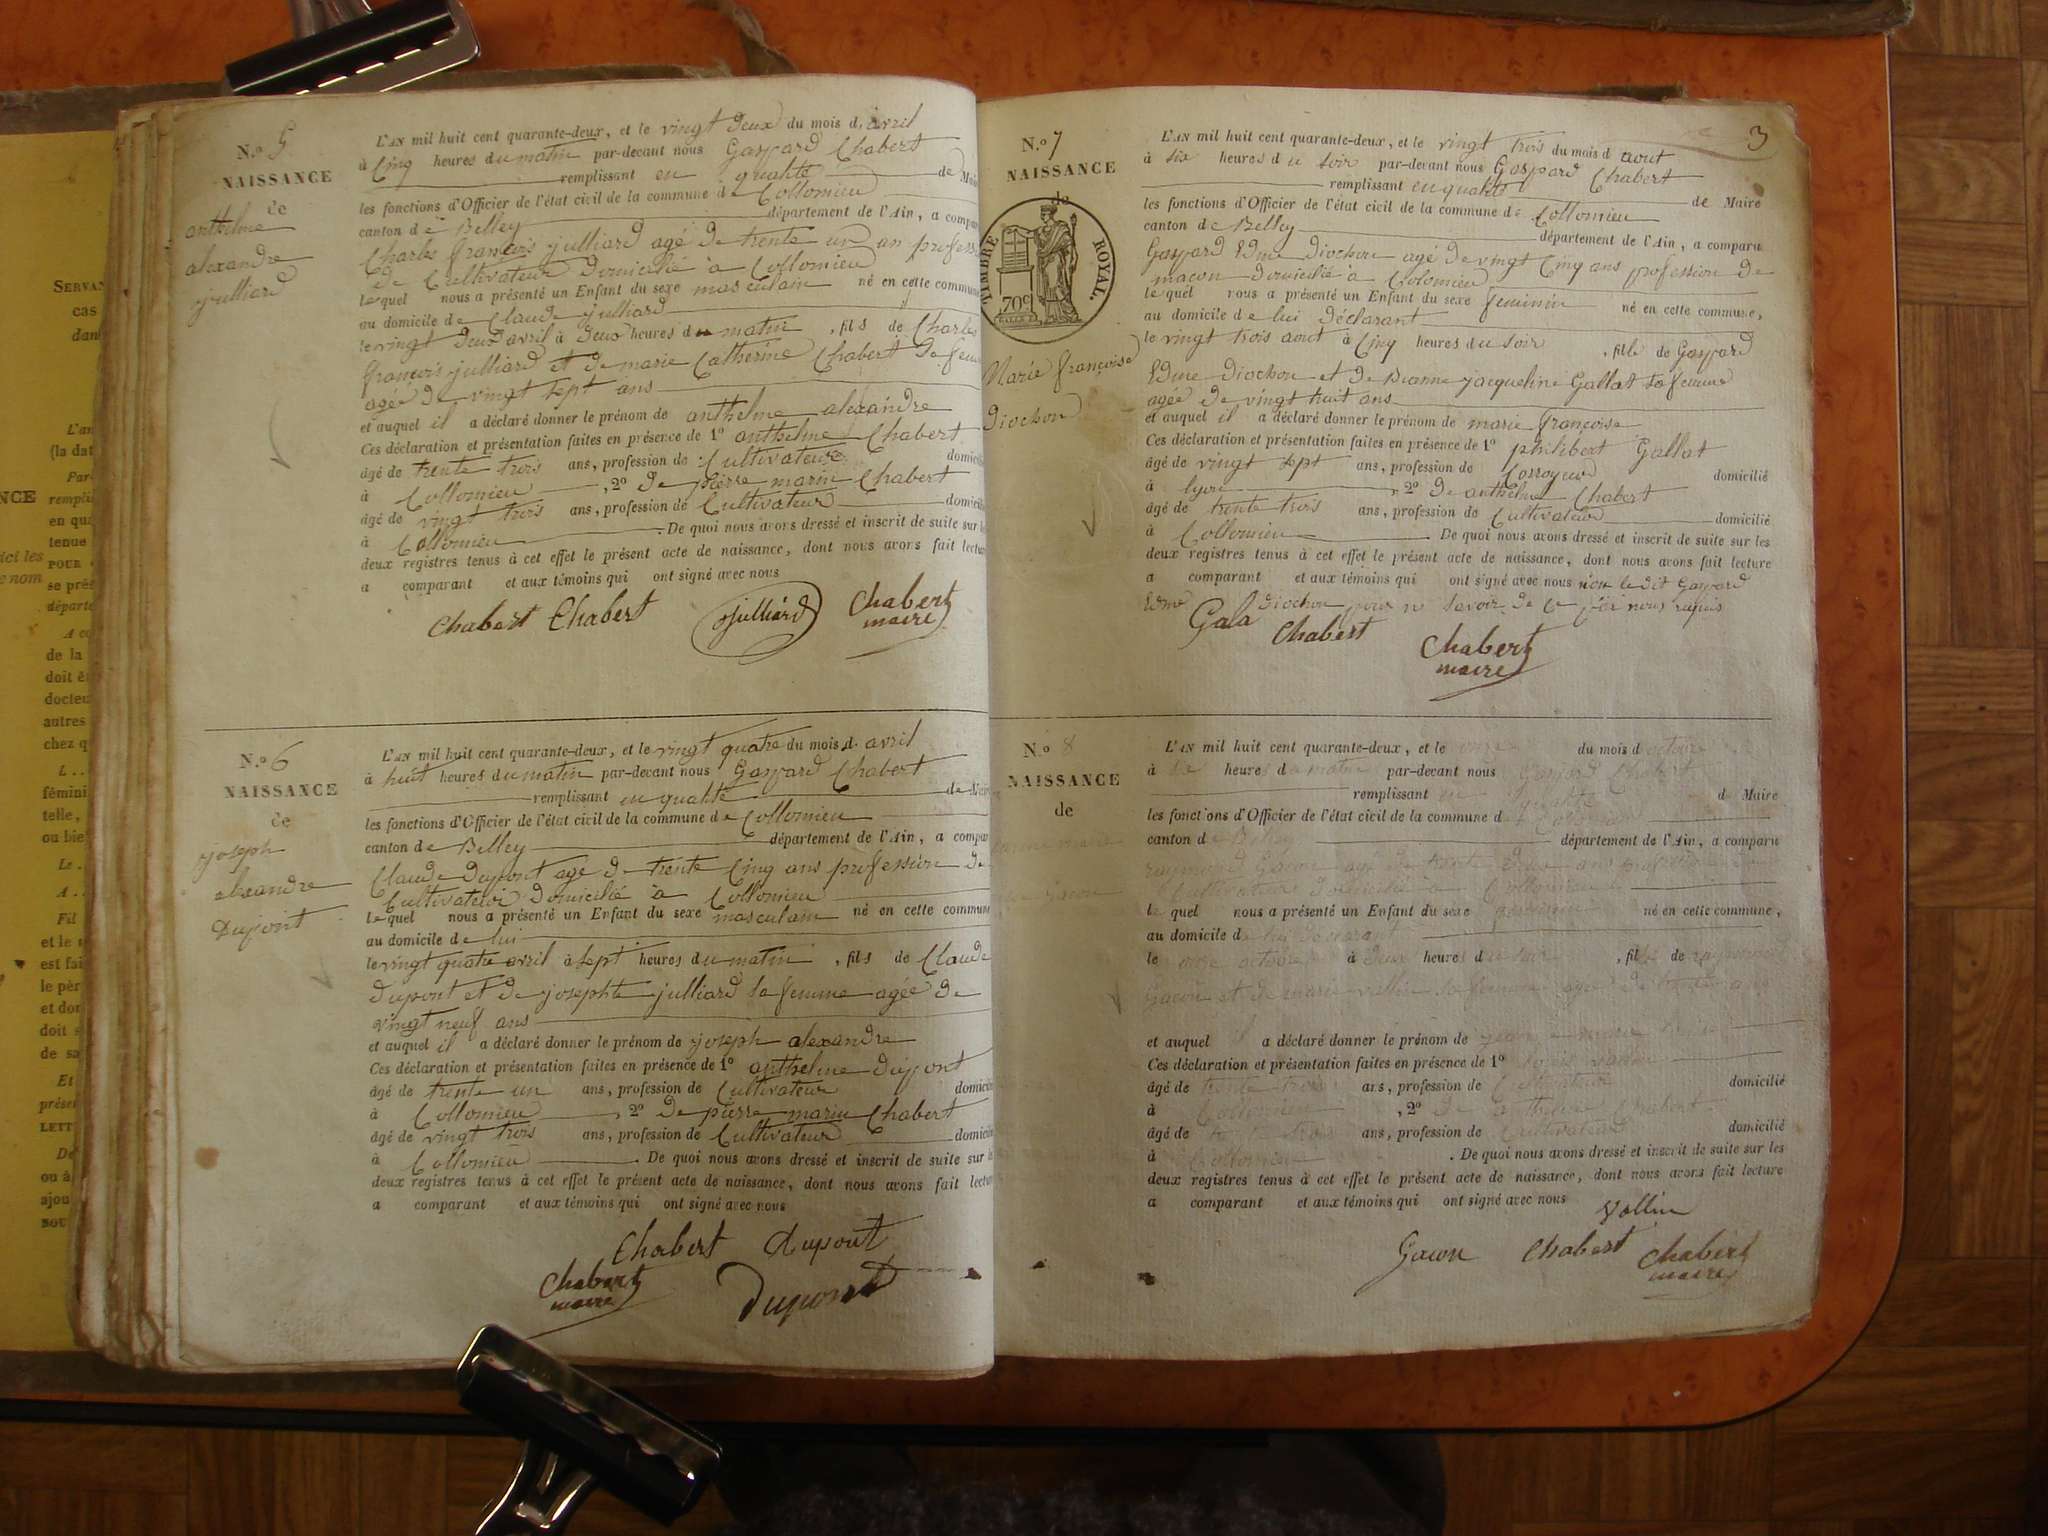 N.o 5
NAISSANCE
de
anthelme
alexandre
julliard
L'AN mil huit cent quarante-deux, et le vingt deux du mois d avril
à Cinq heures du matin par-devant nous Gaspard Chabert
remplissant en qualité de Maire
les fonctions d'Officier de l'état civil de la commune de Collomieu
canton de Belley département de l'Ain, a comparu
Charles françois julliard agé de trente un an profess
de Cultivateur Domicilié à Collomieu
le quel nous a présenté un Enfant du sexe masculain né en cette commune
au domicile de Claude julliard
le vingt deux avril à deux heures du matin , fils de Charles
françois julliard et de marie Catherine Chabert sa feme
agée de vingt sept ans
et auquel il a déclaré donner le prénom de anthelme alexandre
Ces déclaration et présentation faites en présence de 1º anthelme Chabert
âgé de trente trois ans, profession de Cultivateur domicilié
à Collomieu , 2º de pierre marin Chabert
âgé de vingt trois ans, profession de Cultivateur domicilié
à Collomieu . De quoi nous avons dressé et inscrit de suite sur les
deux registres tenus à cet effet le présent acte de naissance, dont nous avons fait lecture
a comparant et aux témoins qui ont signé avec nous
Chabert Chabert julliard Chabert
maire
N.o 6
NAISSANCE
de
joseph
alexandre
Dupont
L'AN mil huit cent quarante-deux, et le vingt quatre du mois d. avril
à huit heures du matin par-devant nous Gaspard Chabert
remplissant en qualité de Maire
les fonctions d'Officier de l'état civil de la commune de Collomieu
canton de Belley département de l'Ain, a compar
Claude Dupont agé de trente Cinq ans profession de
Cultivateur Domicilié à Collomieu
le quel nous a présenté un Enfant du sexe masculain né en cette commune
au domicile de lui
le vingt quatre avril à sept heures du matin , fils de Claude
Dupont et de josephte julliard sa femme agée de
vingt neuf ans
et auquel il a déclaré donner le prénom de joseph alexandre
Ces déclaration et présentation faites en présence de 1º anthelme Dupont
âgé de trente un ans, profession de Cultivateur domicilié
à Collomieu , 2º de pierre marin Chabert
âgé de vingt trois ans, profession de Cultivateur domicilié
à Collomieu . De quoi nous avons dressé et inscrit de suite sur les
deux registres tenus à cet effet le présent acte de naissance, dont nous avons fait lecture
a comparant et aux témoins qui ont signé avec nous
Chabert Dupont
Chabert
maire Dupont
3
N.o 7
NAISSANCE
de
TIMBRE ROYAL.
70c
Marie françoise
Diochon
L'AN mil huit cent quarante-deux, et le vingt trois du mois d aout
à six heures du soir par-devant nous Gaspard Chabert
remplissant en qualité de Maire
les fonctions d'Officier de l'état civil de la commune de Collomieu
canton de Belley département de l'Ain, a comparu
Gaspard Edme Diochon agé de vingt Cinq ans profession de
macon domicilié à Colomieu
le quel nous a présenté un Enfant du sexe feminin né en cette commune,
au domicile de lui déclarant
le vingt trois aout à Cinq heures du soir , fille de Gaspard
Edme Diochon et de jacqueline Gallat sa femme
agée de vingt huit ans
et auquel il a déclaré donner le prénom de marie françoise
Ces déclaration et présentation faites en présence de 1º philibert Gallat
âgé de vingt sept ans, profession de Corroyeur domicilié
à lyon , 2º de anthelme Chabert
âgé de trente trois ans, profession de Cultivateur domicilié
à Collomieu . De quoi nous avons dressé et inscrit de suite sur les
deux registres tenus à cet effet le présent acte de naissance, dont nous avons fait lecture
a comparant et aux témoins qui ont signé avec nous non le dit Gaspard
Edme Diochon pour ne savoir de ce par nous requis
Gala Chabert Chabert
maire
N.o 8
NAISSANCE
de
L'AN mil huit cent quarante-deux, et le onze du mois d octobre
à heures du matin par-devant nous Gaspard Chabert
remplissant en qualité d Maire
les fonctions d'Officier de l'état civil de la commune d
canton de Belley département de l'Ain, a comparu
raymond Gacon agé trente
Cultivateur domicilié à Collomieu
le quel nous a présenté un Enfant du sexe feminin né en cette commune,
au domicile de lui déclarant
le onze octobre à deux heures du , fille de raymond
Gacon et de marie sa femme agée de
et auquel il a déclaré donner le prénom de marie
Ces déclaration et présentation faites en présence de 1º
âgé de trente trois ans, profession de Cultivateur domicilié
à Collomieu , 2º de anthelme Chabert
âgé de trente trois ans, profession de Cultivateur domicilié
à Collomieu . De quoi nous avons dressé et inscrit de suite sur les
deux registres tenus à cet effet le présent acte de naissance, dont nous avons fait lecture
a comparant et aux témoins qui ont signé avec nous Vollin
Gacon Chabert Chabert
maire